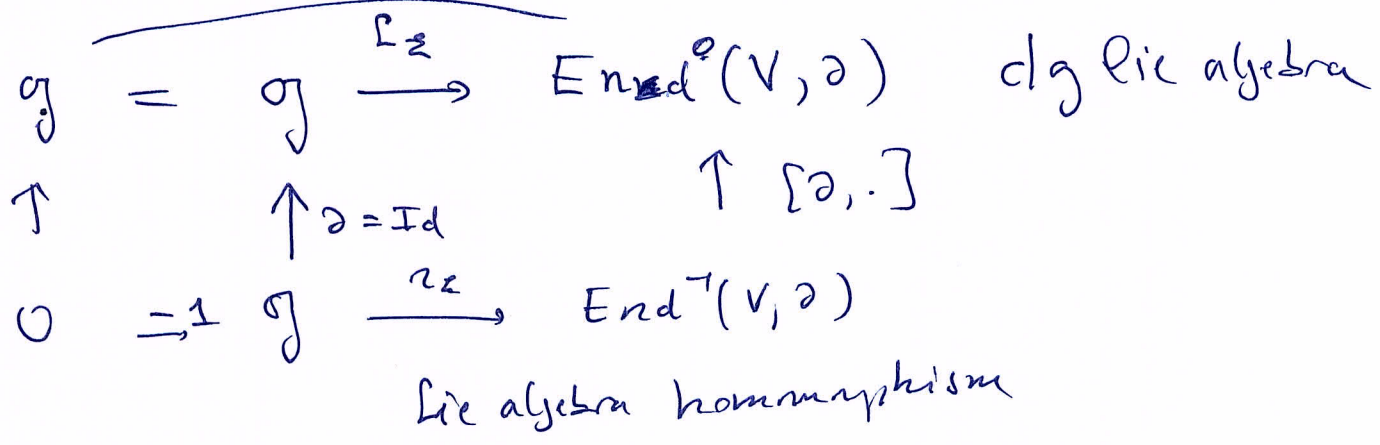 g = g $\xrightarrow{L_\xi}$ End⁰(V, ∂) dg Lie algebra
↑ ↑ ∂ = Id ↑ [∂, .]
0 g $\xrightarrow{\iota_\xi}$ End⁻¹(V, ∂)
Lie algebra homomorphism